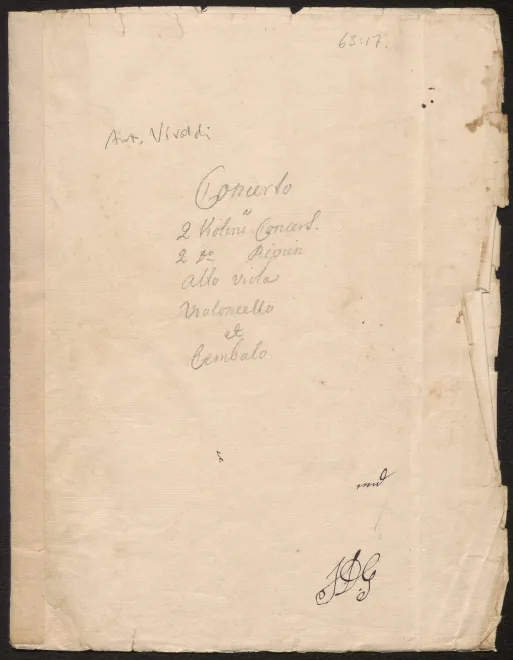 63:17.
Ant. Vivaldi
Concerto
2 Violini Concert.
2 do Ripien
Alto viola
Violoncello
et
Cembalo
JDG